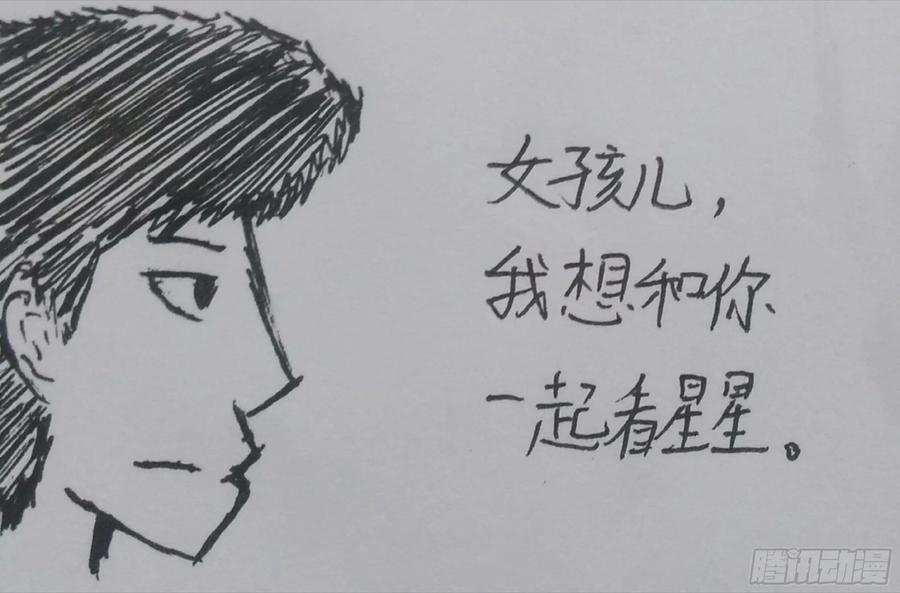 女孩儿，
我想和你
一起看星星。
腾讯动漫